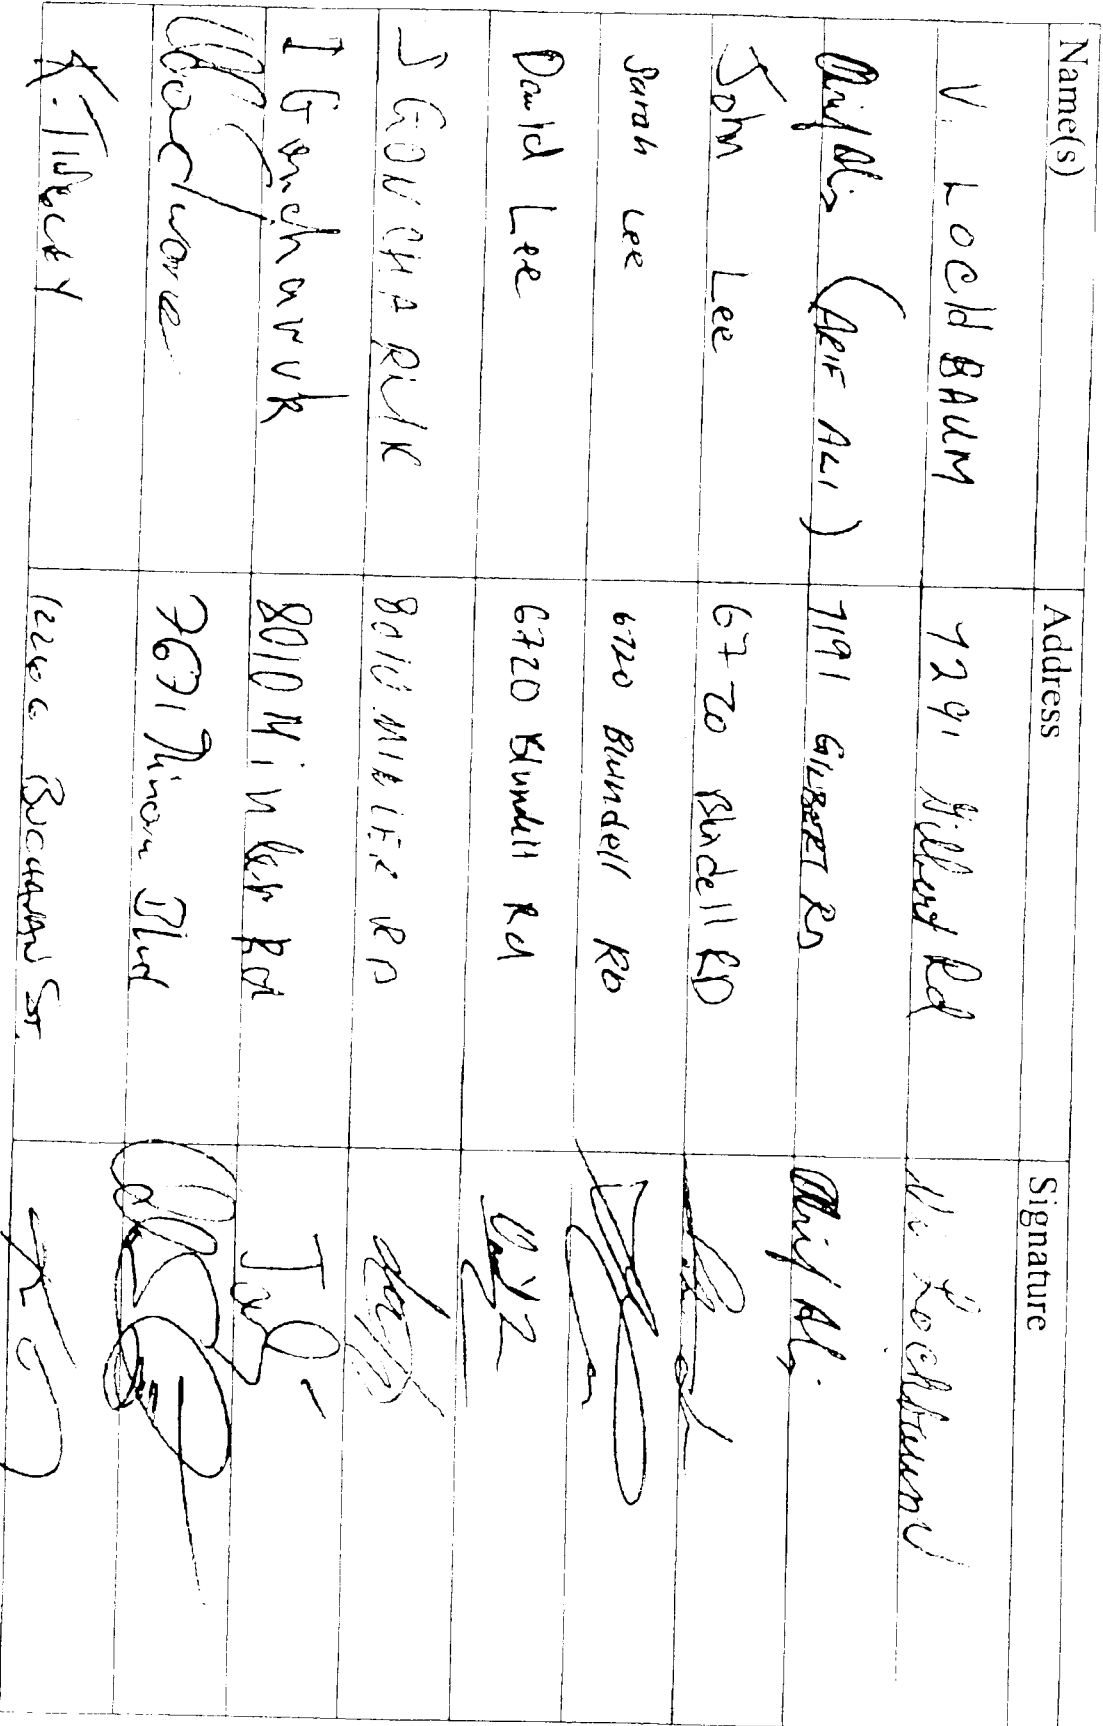 Name(s) Address Signature
V. LOCHBAUM 7291 Gilbert Rd V. Lochbaum
Arif Ali (ARIF ALI) 7191 GILBERT RD Arif Ali
John Lee 6720 Blndell RD
Sarah Lee 6720 Blundell RD
David Lee 6720 Blundell Rd
J GONCHARUK 8010 MINLER RD
I Goncharuk 8010 Minler Rd
7671 Minoru Blvd
K. 12260 BUCHANAN ST.